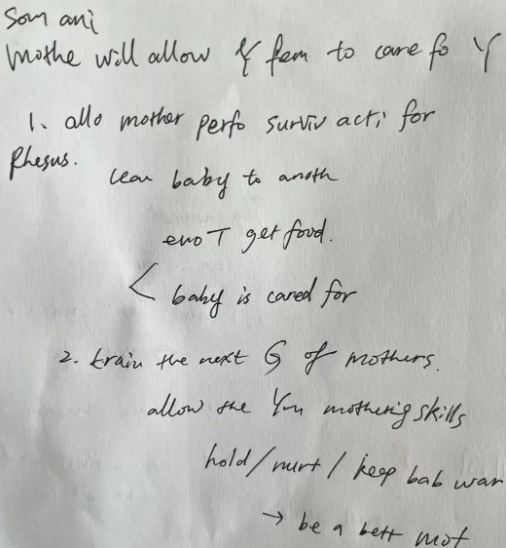 Som ani
Mothe will allow Y fem to care fo Y
1. allo mother perfo surviv acti for
Rhesus.
lean baby to anoth
eno T get food.
< baby is cared for
2. train the next G of mothers.
allow the Youn mothering skills
hold/nurt/keep bab war
→ be a bett mot